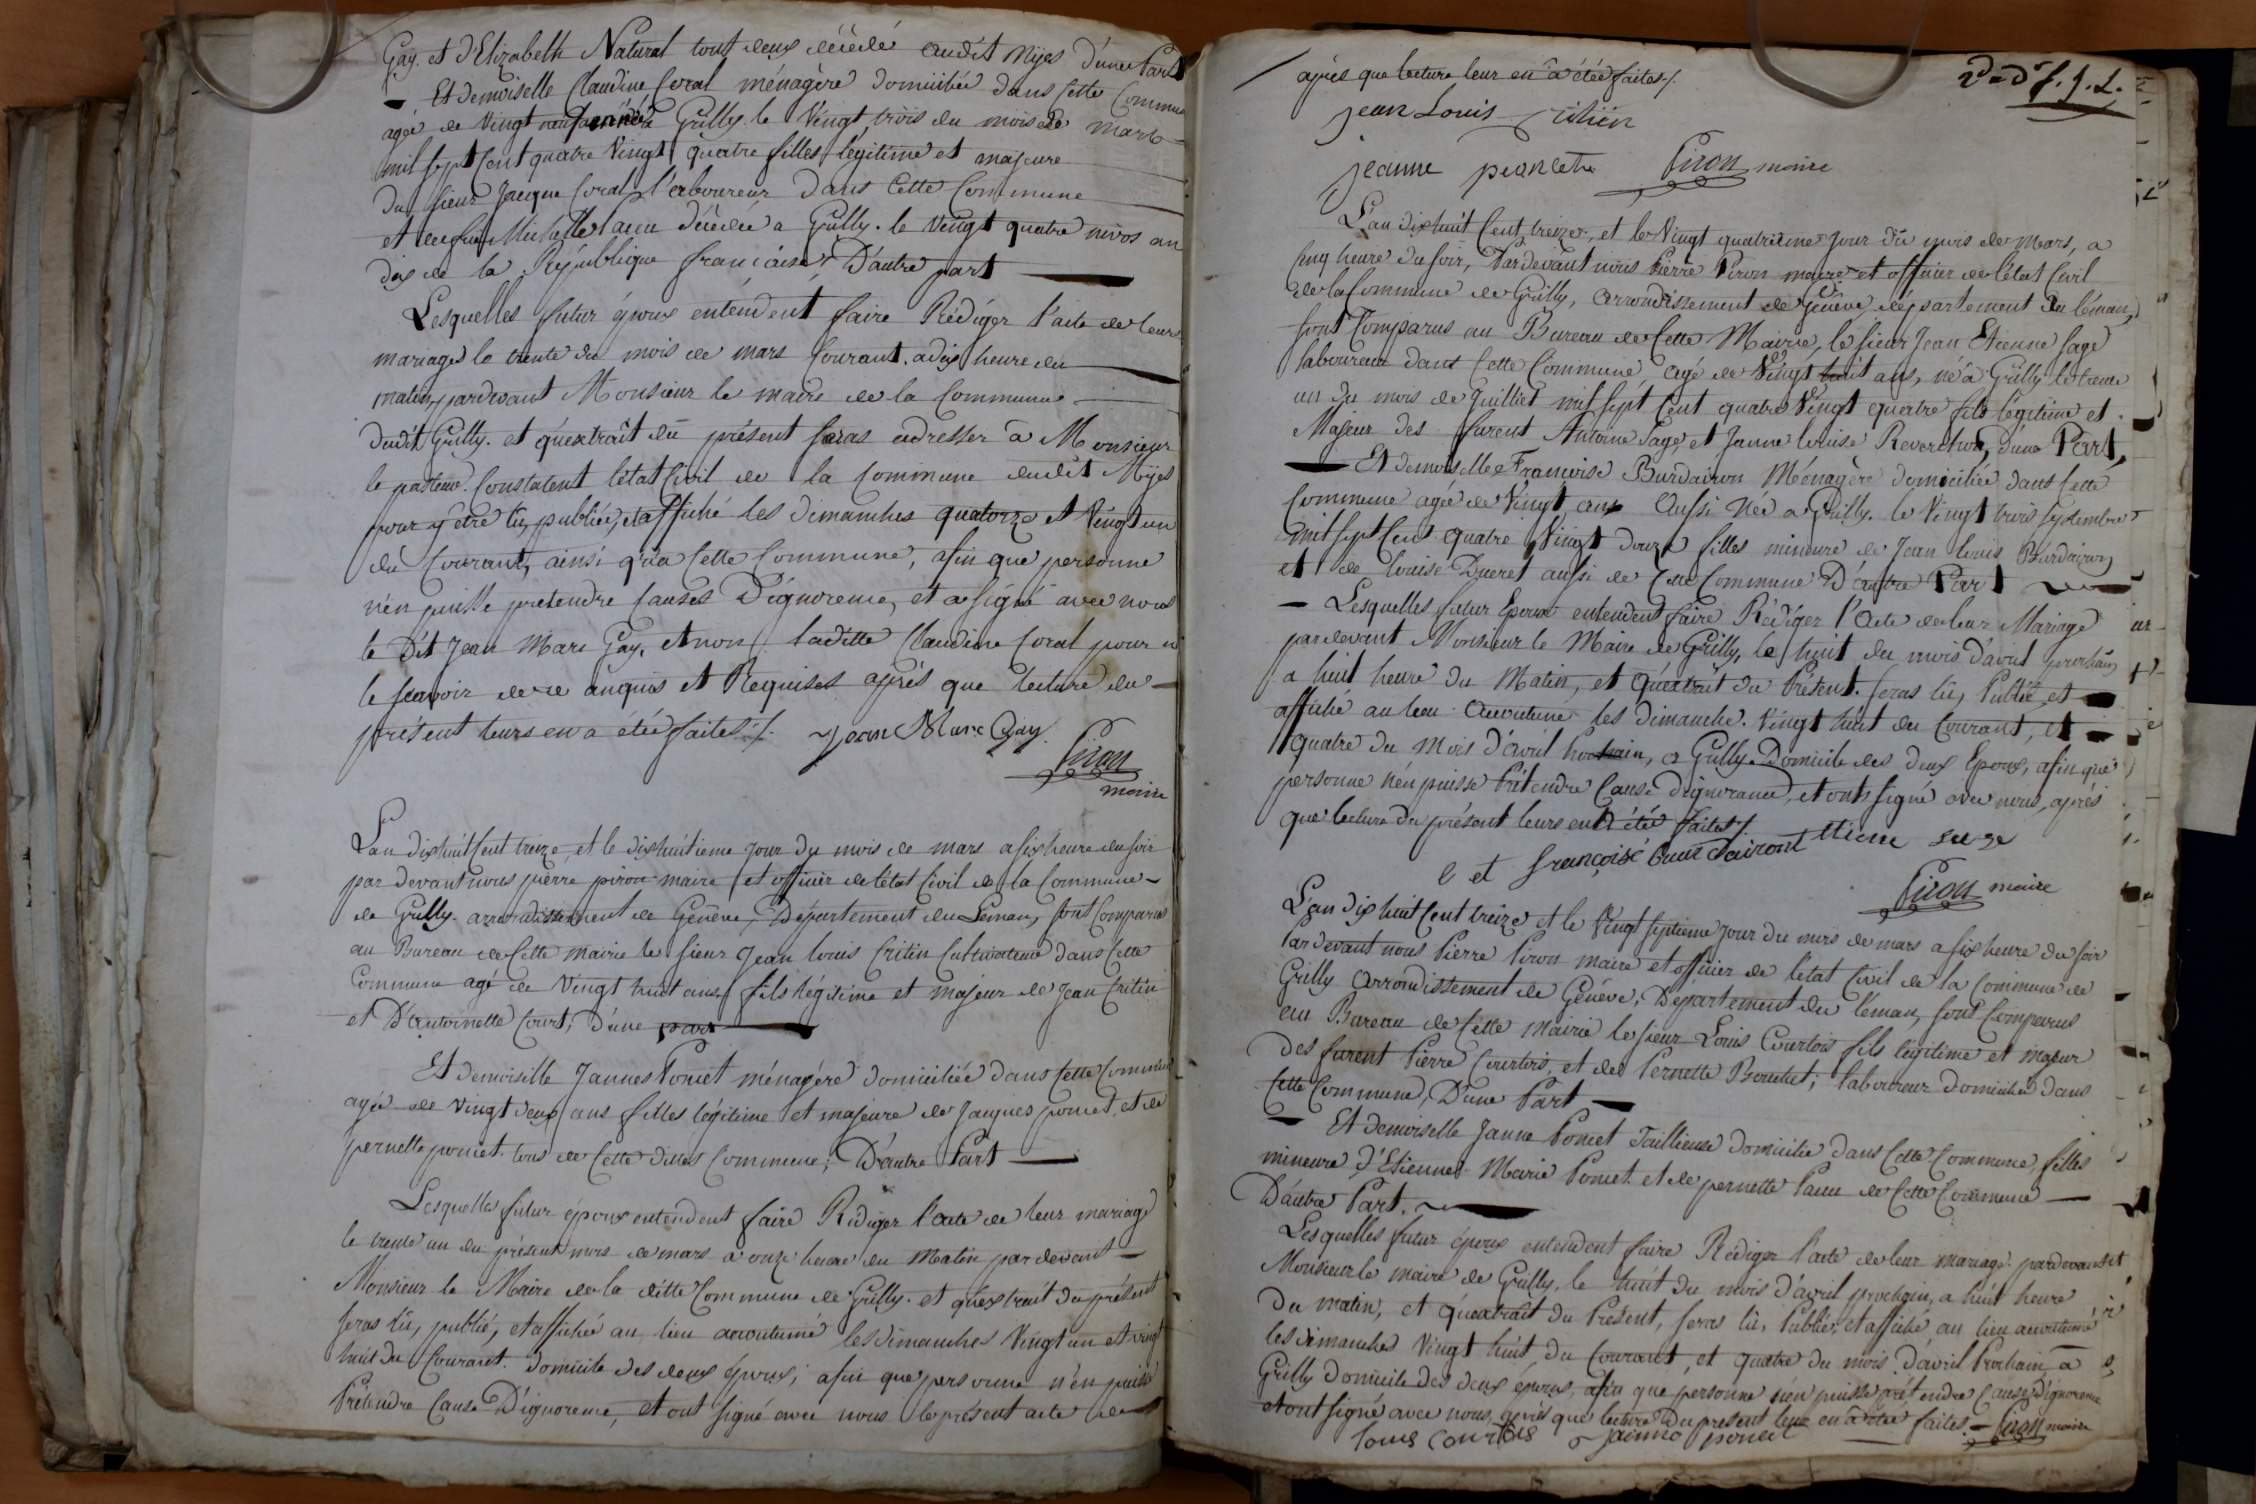 Gay. et d'Elizabeth Natural tout deux décédé audit Mijes D'une Part
Et demoiselle Claudine Coral ménagère domiciliée dans Cette Commune
agée de Vingt neuf née a Grilly. le Vingt trois du mois de mars
mil sept Cent quatre Vingt quatre filles légitime et majeure
du sieur Jacque Coral, l'aboureur dans Cette Commune
et de fue Michelle décédée a Grilly. le Vingt quatre nivos an
dix de la République francaise, D'autre part
Lesquelles futur époux entendent faire Rédiger l'acte de leur
mariages le trente du mois de mars Courant. a dix heure du
matin, pardevant Monsieur le maire de la Commune
dudit Grilly. et q'uextrait du présent seras adresser a Monsieur
le pasteur. Constatent l'état Civil de la Commune dudit Mijes
pour y être lû, publiée, et affiché les dimanches quatorze et Vingt un
du Courant, ainsi q'ua Cette Commune, afin que personne
n'en puisse pretendre Causes D'ignorence, et a signé avec nous
le Dit Jean Marc Gay, et non laditte Claudine Coral pour ne
le scavoir de ce anquis et Requises aprés que lecture du
présent leurs en a étée faites ./. Jean Marc Gay.
Piron
maire
L'an dix huit Cent treize, et le dix huitieme jour du mois de mars a six heure du soir
par devant nous pierre piron maire et officier de l'état Civil de la Commune
de Grilly. arrondissement de Genêve, Département du Leman, sont Comparus
au Bureau de Cette mairie le sieur Jean louis Critin Cultivateur dans Cette
Commune agé de Vingt huit ans, fils légitime et majeur de Jean Critin
et D'antoinette Court; D'une part
Et demoiselle Jannes Poncet ménagére domiciliée dans Cette Commune
agée de vingt deux ans filles légitime et majeure de Jaques poncet, et de
pernette poncet. tous de Cette dittes Commune; D'autre Part
Lesquelles futur époux entendent faire Rediger l'acte de leur mariage
le trente un du présent mois de mars a onze heure du Matin par devant
Monsieur le Maire de la ditte Commune de Grilly. et q'uextrait du présent
seras lû, publié, et affichée au lieu accoutumé les dimanches Vingt un et vingt
huit du Courant. domicile des deux époux, afin que personne n'en puisse
Prétendre Cause D'ignorence, et ont signé avec nous le présent acte
après que lecture leur en a étée faites ./.
jean Louis Critin
jeanne poncet Piron maire
L'an dix huit Cent treize, et le Vingt quatrieme jour du mois de Mars, a
Cinq heure du soir, Pardevant nous Pierre Piron maire et officier de l'état Civil
de la Commune de Grilly, arrondissement de Genêve département du léman,
sont Comparus au Bureau de Cette Mairie, le sieur Jean Etienne Sage
laboureur dans Cette Commune agé de Vingt huit ans, né à Grilly le trente
un du mois de Juilliet mil sept Cent quatre Vingt quatre fils légitime et
Majeur des furent Antoine Sage, et Janne louise Reverchon, d'une Part,
Et demoiselle Francoise Burdairon Ménagère domiciliée dans Cette
Commune agée de Vingt ans Aussi Née a Grilly. le Vingt trois septembre
mil sept Cent quatre Vingt douze filles mineure de Jean louis Burdairon
et de louise Ducret aussi de Cette Commune D'autre Part
Lesquelles futur Epoux entendent faire Rédiger l'Acte de leur Mariage
par devant Monsieur le Maire de Grilly, le huit du mois d'avril prochain
a huit heure du Matin, et q'uextrait du Présent. seras lû, Publié et
affiché au lieu Accoutumé les dimanche. Vingt huit du Courant, et
quatre du Mois d'avril Prochain, a Grilly Domicile des deux Epoux, afin que
personne n'en puisse Prétendre Cause d'ignorance, et onts signé avec nous, aprés
que lecture du présent leurs en a été faites ./.
et françoise burdairont etiene sage
Piron maire
L'an dix huit Cent treize et le Vingt septieme jour du mois de mars a six heure du soir
Pardevant nous Pierre Piron maire et officier de l'état Civil de la Commune de
Grilly Arrondissement de Genéve, Département du léman, sont Comparus
au Bureau de Cette Mairie le sieur Louis Courtois fils légitime et majeur
des furent Pierre Courtois, et de Pernette Bouchet; laboureur domicilié dans
Cette Commune, D'une Part
Et demoiselle Janne Poncet Taillieuse domiciliée dans Cette Commune, filles
mineure d'Etiennes Marie Poncet et de pernette Panu de Cette Commune
D'autre Part.
Lesquelles futur époux entendent faire Rédiger l'acte de leur mariage pardevant
Monsieur le maire de Grilly, le huit du mois d'avril prochain, a huit heure
du matin, et q'uextrait du Présent, seras lû, Publié, et affiché au lieu accoutumé
les dimanches Vingt huit du Courant, et quatre du mois D'avril Prochain a
Grilly domicile des deux époux, afin que personne n'en puisse prétendre Cause d'ignorence
et ont signé avec nous, après que lecture du présent leur en a été faites. Piron maire
louis Courtois jeanne poncet